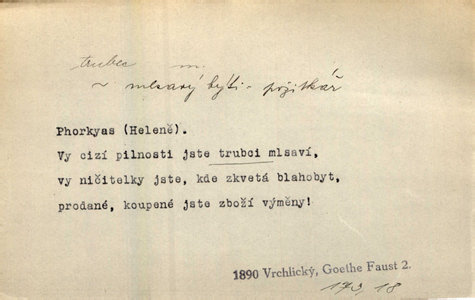 trubec m.
~ mlsavý býti - požitkář
Phorkyas (Heleně).
Vy cizí pilnosti jste trubci mlsaví,
vy ničitelky jste, kde zkvetá blahobyt,
prodané, koupené jste zboží výměny!
1890 Vrchlický, Goethe Faust 2.
173, 18